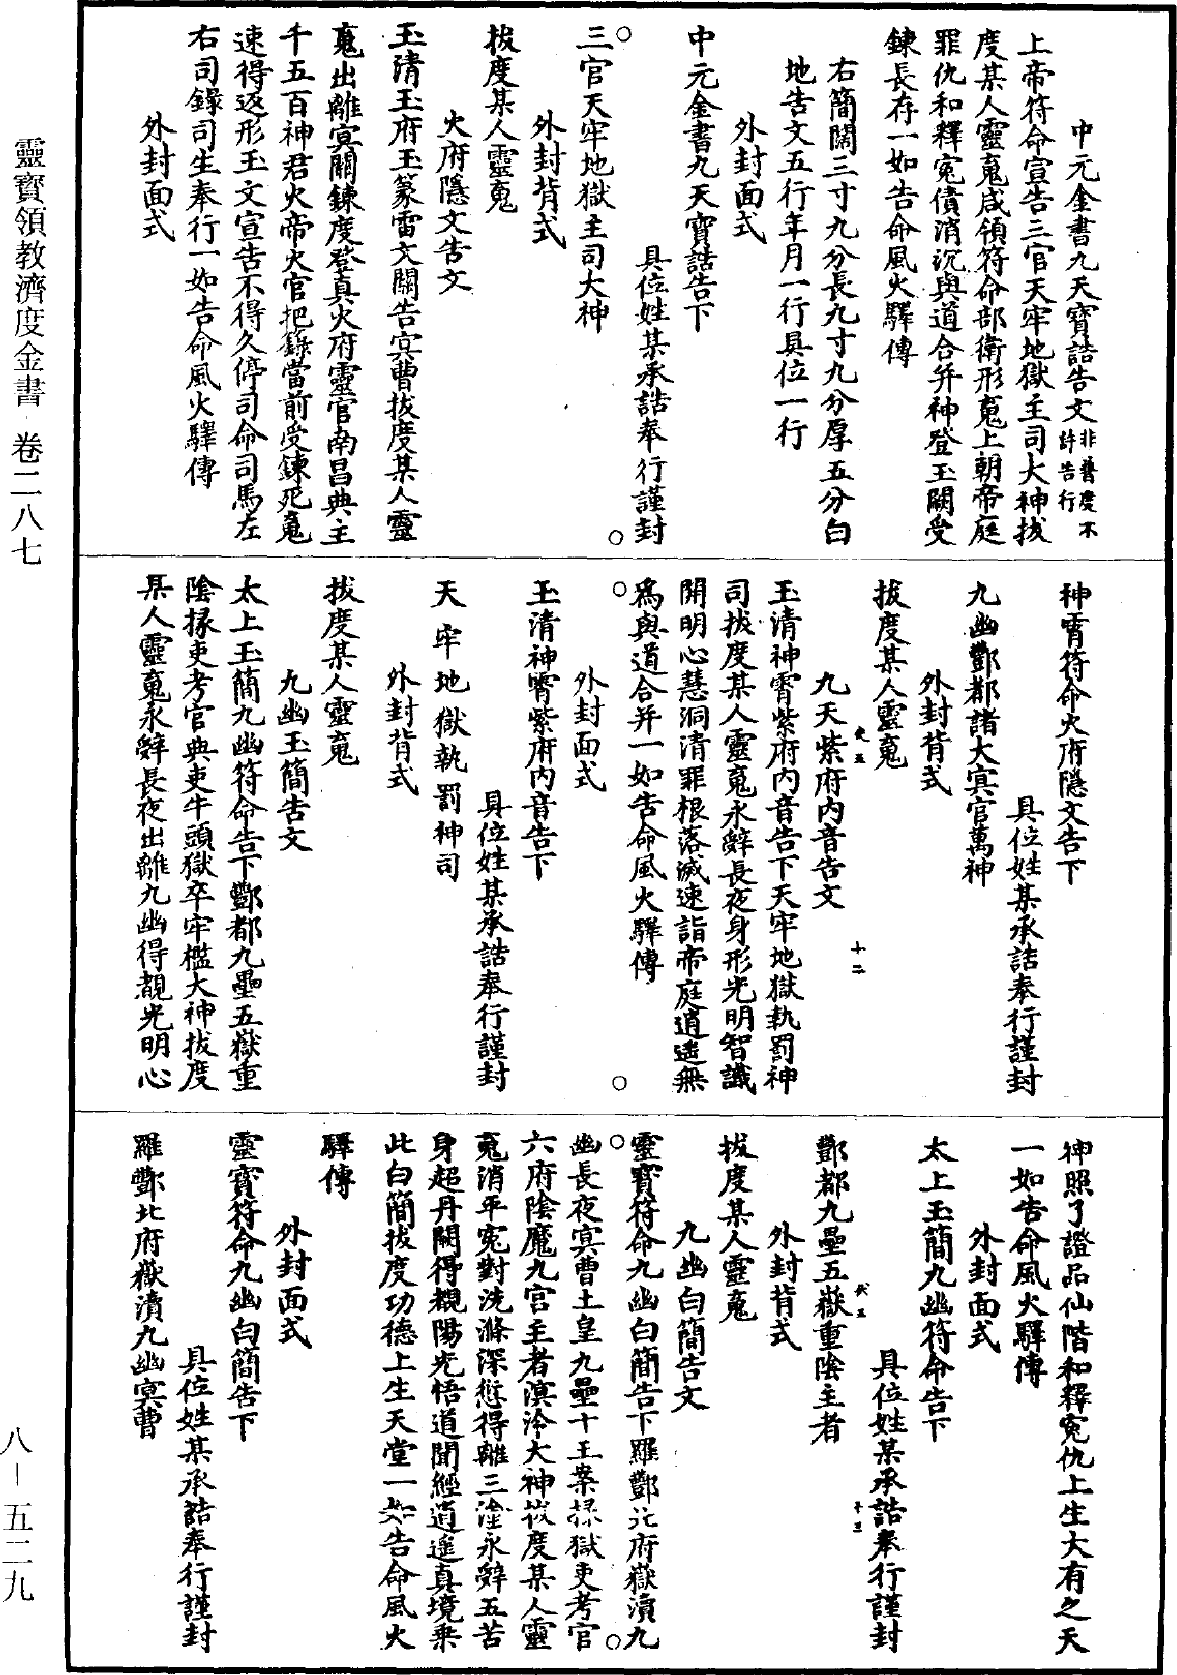 中元金書九天寶誥告文非普度不許告行
上帝符命宣告三官天牢地獄主司大神拔
度某人靈䰟咸領符命部衛形䰟上朝帝庭
罪仇和釋寃債消沉與道合并神登玉闕受
鍊長存一如告命風火驛傳
右簡闊三寸九分長九寸九分厚五分白
地告文五行年月一行具位一行
外封面式
中元金書九天寶誥告下
具位姓某承誥奉行謹封
三官天牢地獄主司大神
外封背式
拔度某人靈䰟
火府隱文告文
玉清玉府玉篆雷文關告宾曹拔度某人靈
䰟出離冥關鍊度登真火府靈官南昌典主
千五百神君火帝火官把籙當前受鍊死䰟
速得返形玉文宣告不得久停司命司馬左
右司錄司生奉行一如告命風火驛傳
外封面式
神霄符命火府隱文告下
具位姓某承誥奉行謹封
九幽酆都諸大冥官萬神
外封背式
拔度某人靈䰟
九天紫府内音告文
十二
玉清神霄紫府内音告下天牢地獄執罰神
司拔度某人靈䰟永辭長夜身形光明智識
開明心慧洞清罪根落滅速詣帝庭逍遙無
為與道合并一如告命風火驛傳
外封面式
玉清神霄紫府内音告下
具位姓某承誥奉行謹封
天牢地獄執罰神司
外封背式
拔度某人靈䰟
九幽玉簡告文
太上玉簡九幽符命告下酆都九壘五嶽重
陰掾吏考官典吏牛頭獄卒牢檻大神拔度
某人靈䰟永辭長夜出離九幽得覩光明心
神照了證品仙階和釋寃仇上生大有之天
一如告命風火驛傳
外封面式
太上玉簡九幽符命告下
具位姓某承誥奉行謹封
十三
酆都九壘五嶽重陰主者
外封背式
拔度某人靈䰟
九幽白簡告文
靈寶符命九幽白簡告下羅酆北府嶽瀆九
幽長夜冥曹土皇九壘十王案掾獄吏考官
六府陰魔九宫主者溟泠大神拔度某人靈
䰟消平寃對洗滌深愆得離三塗永辭五苦
身超丹闕得覩陽光悟道聞經逍遙真境乘
此白簡拔度功德上生天堂一如告命風火
驛傳
外封面式
靈寶符命九幽白簡告下
具位姓某承誥奉行謹封
羅酆北府嶽瀆九幽冥曹
靈寶領教濟度金書·卷二八七
八—五二九